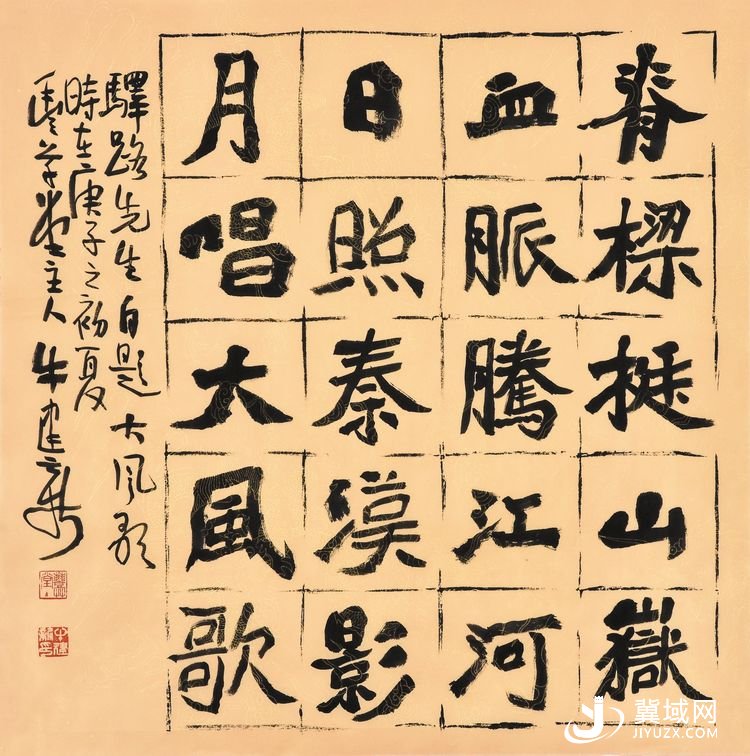 脊樑挺山嶽
血脈騰江河
日照秦漢影
月唱大風歌
驛路先生自題大风歌
時在庚子之初夏
草堂主人牛建
冀域网
JIYUZX.COM